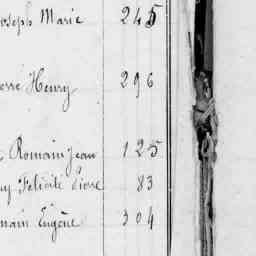 Joseph Marie 245
Henry 296
Romain Jean 125
Felicité Pierre 83
Eugène 304